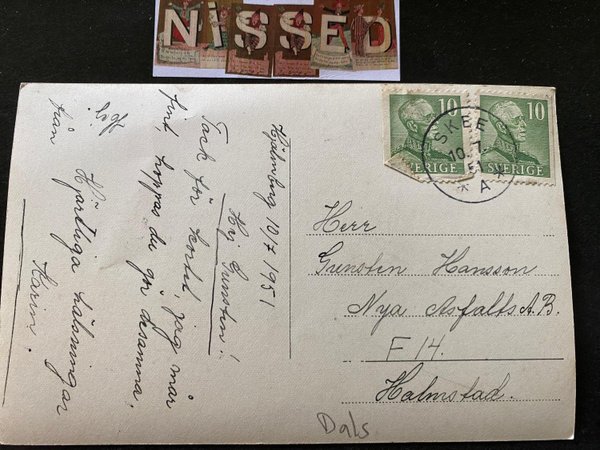 NiSSED
10 10
SVERIGE SVERIGE
SKEE
10.7.
51
* A *
Hjälmberg 10/7 1951
Hej Grensten!
Tack för kortet, jag mår
fint, hoppas du gör desamma.
Hjärtliga hälsningar
från Karin.
Herr
Grensten Hansson
Nya Asfalts A.B.
F 14.
Halmstad.
Dals